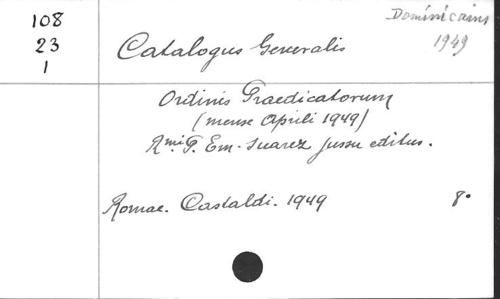 108
23
1
Dominicains
1949
Catalogus Generalis
Ordinis Praedicatorum
(mense Aprili 1949)
R.mi P. Em. Suarez jussu editus.
Romae. Castaldi. 1949 8°